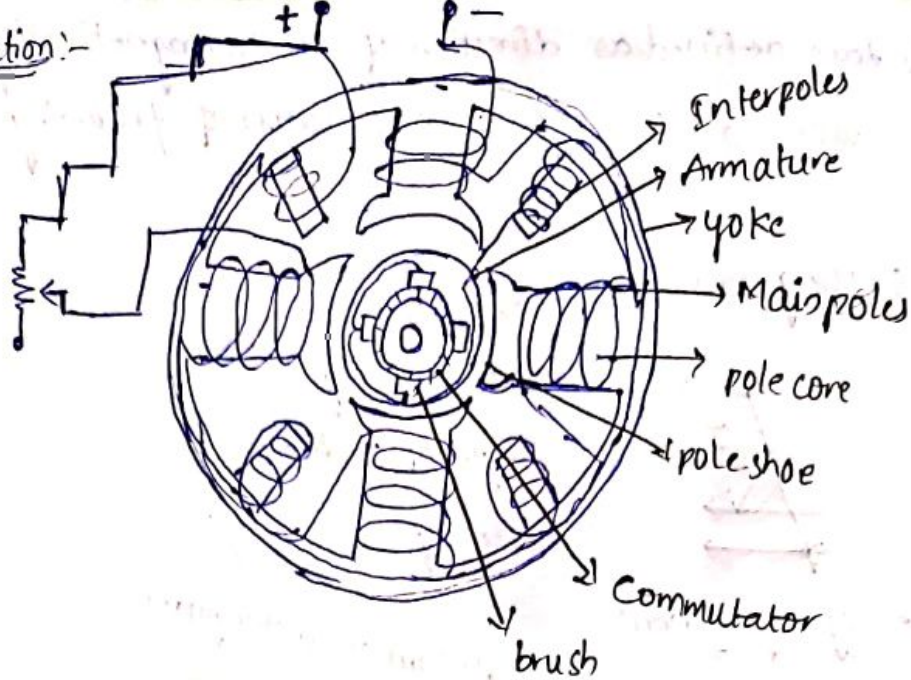 tion:-
+ −
Interpoles
Armature
yoke
Mainpoles
pole core
pole shoe
Commutator
brush